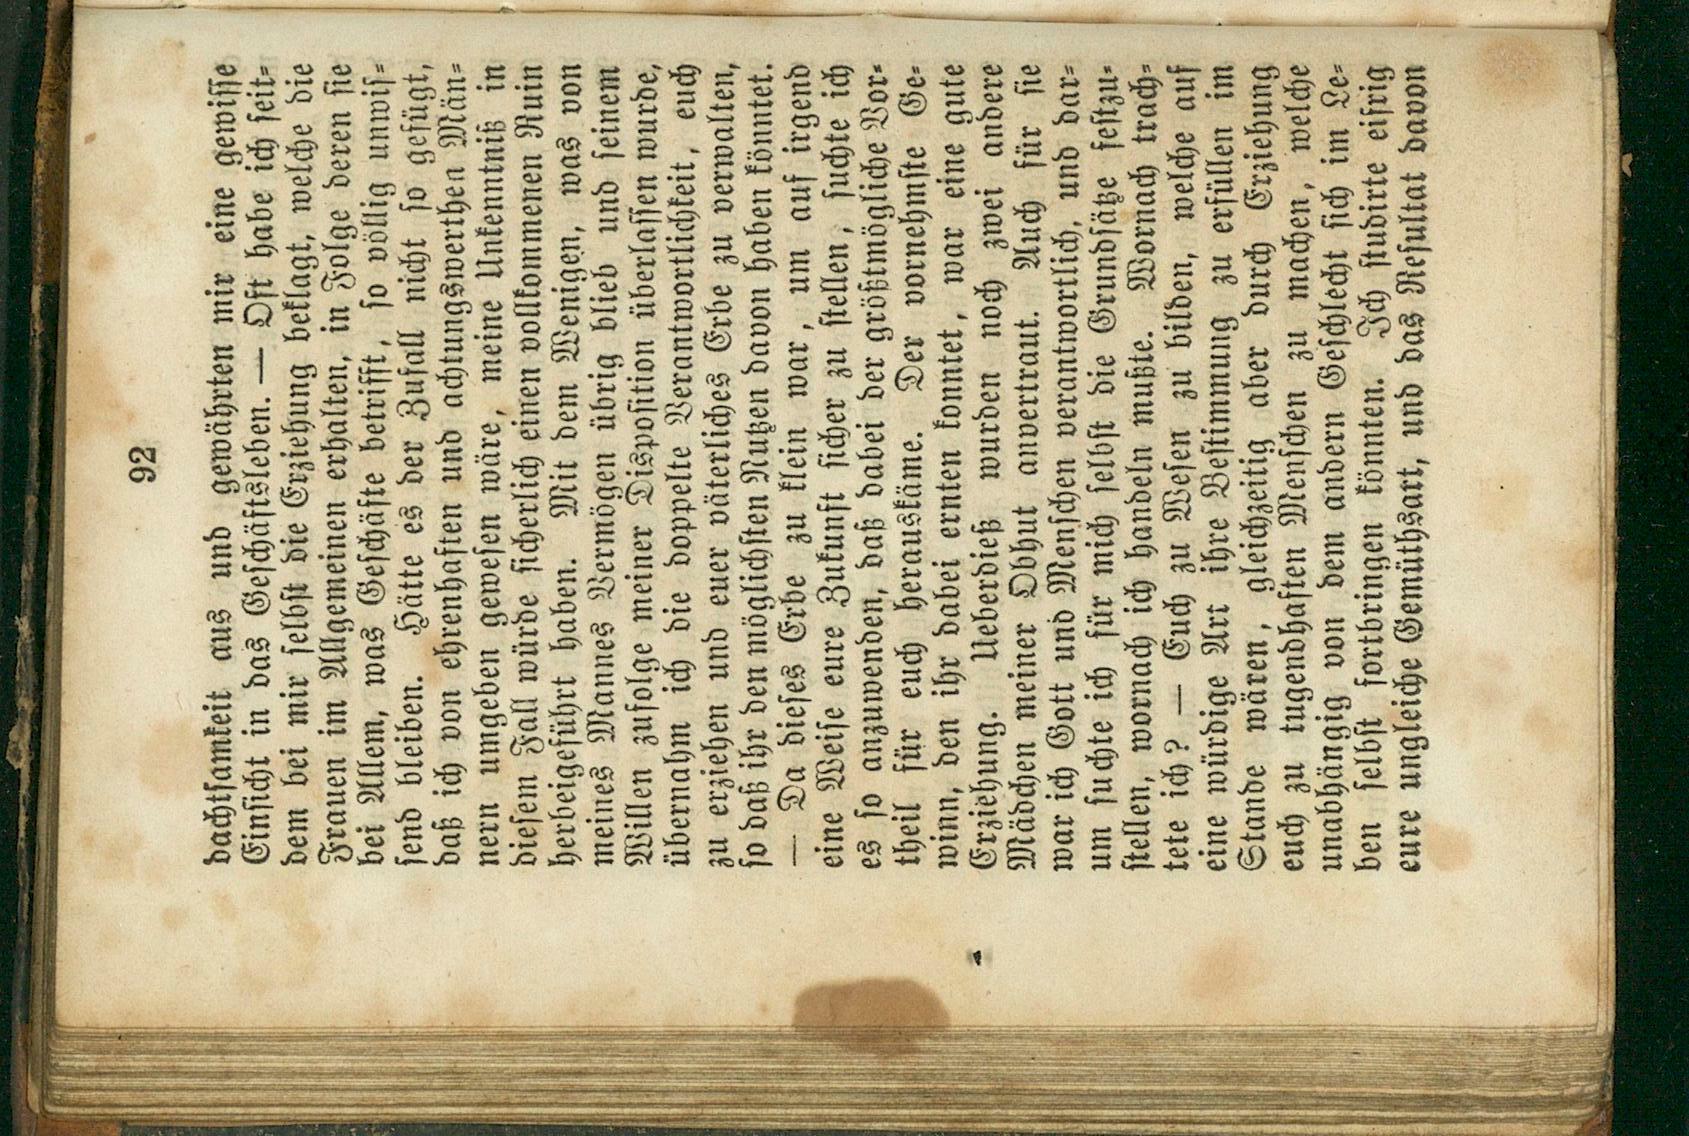 92
dachtsamkeit aus und gewährten mir eine gewisse
Einsicht in das Geschäftsleben. — Oft habe ich seit-
dem bei mir selbst die Erziehung beklagt, welche die
Frauen im Allgemeinen erhalten, in Folge deren sie
bei Allem, was Geschäfte betrifft, so völlig unwis-
send bleiben. Hätte es der Zufall nicht so gefügt,
daß ich von ehrenhaften und achtungswerthen Män-
nern umgeben gewesen wäre, meine Unkenntniß in
diesem Fall würde sicherlich einen vollkommenen Ruin
herbeigeführt haben. Mit dem Wenigen, was von
meines Mannes Vermögen übrig blieb und seinem
Willen zufolge meiner Disposition überlassen wurde,
übernahm ich die doppelte Verantwortlichkeit, euch
zu erziehen und euer väterliches Erbe zu verwalten,
so daß ihr den möglichsten Nutzen davon haben könntet.
— Da dieses Erbe zu klein war, um auf irgend
eine Weise eure Zukunft sicher zu stellen, suchte ich
es so anzuwenden, daß dabei der größtmögliche Vor-
theil für euch herauskäme. Der vornehmste Ge-
winn, den ihr dabei ernten konntet, war eine gute
Erziehung. Ueberdieß wurden noch zwei andere
Mädchen meiner Obhut anvertraut. Auch für sie
war ich Gott und Menschen verantwortlich, und dar-
um suchte ich für mich selbst die Grundsätze festzu-
stellen, wornach ich handeln mußte. Wornach trach-
tete ich? — Euch zu Wesen zu bilden, welche auf
eine würdige Art ihre Bestimmung zu erfüllen im
Stande wären, gleichzeitig aber durch Erziehung
euch zu tugendhaften Menschen zu machen, welche
unabhängig von dem andern Geschlecht sich im Le-
ben selbst fortbringen könnten. Ich studirte eifrig
eure ungleiche Gemüthsart, und das Resultat davon